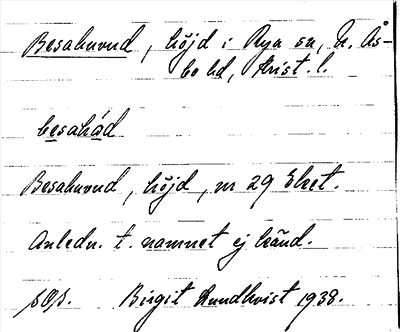 Besahuvud, höjd i Rya sn, N. Ås-
bo hd, Krist. l.
besahɑ́d
Besahuvud, höjd, nr 29 Ehet.
Anledn. t. namnet ej känd.
Birgit Rundkvist 1938.